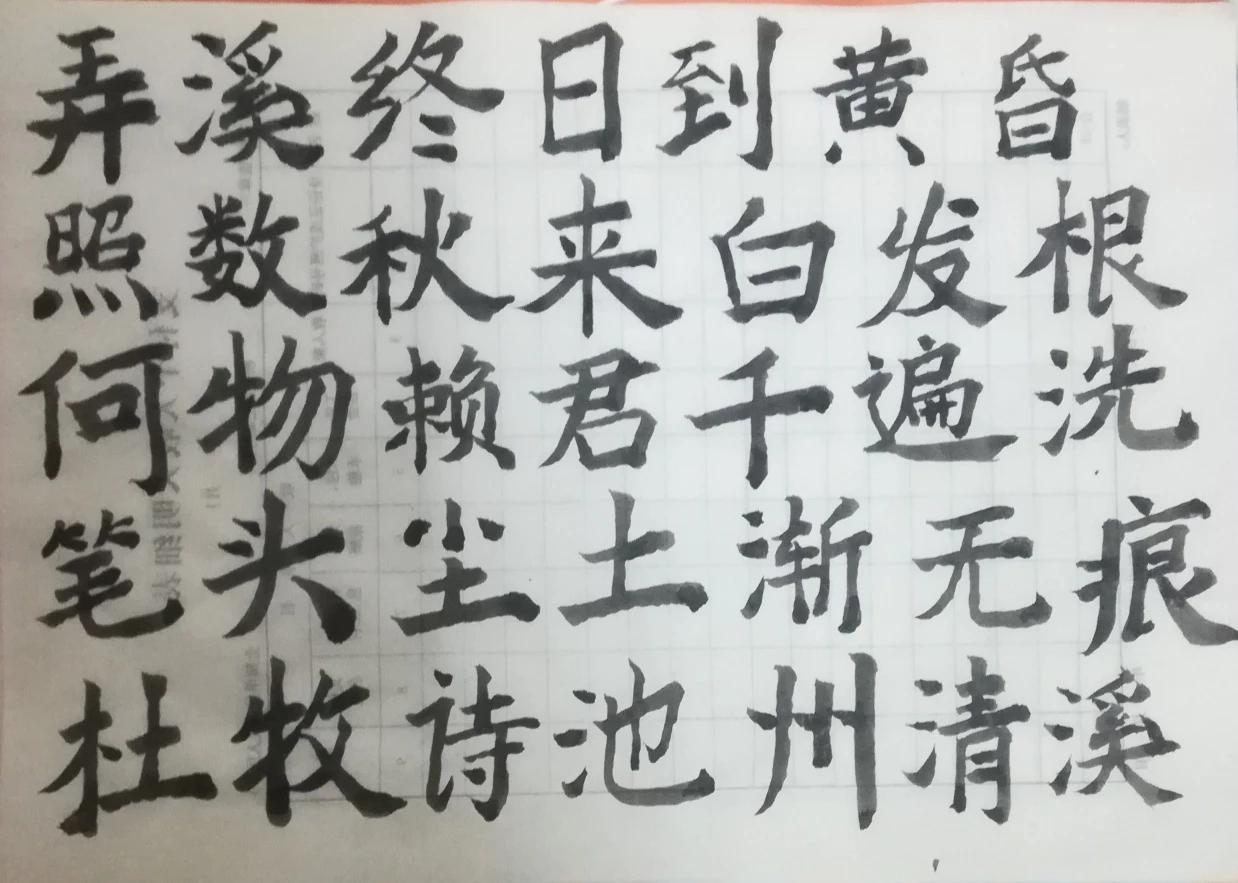 弄溪终日到黄昏
照数秋来白发根
何物赖君千遍洗
笔头尘土渐无痕
杜牧诗池州清溪